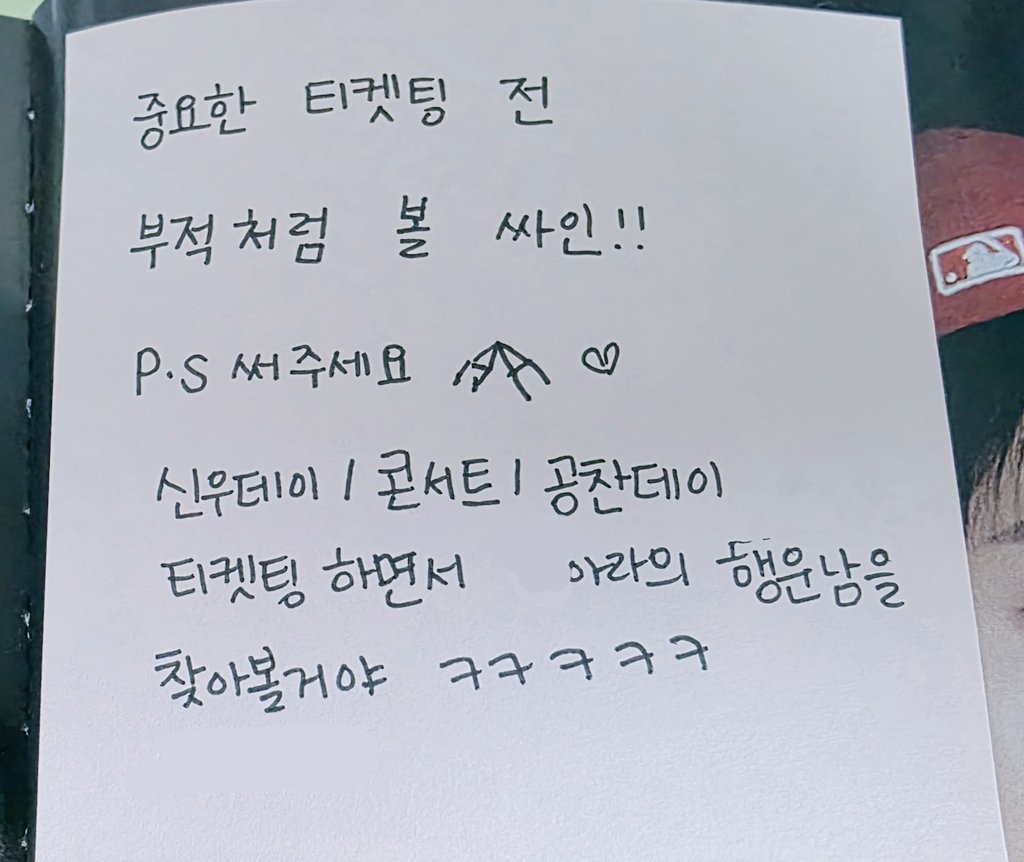 중요한 티켓팅 전
부적처럼 볼 싸인!!
P.S 써주세요 ♡
신우데이 / 콘서트 / 공찬데이
티켓팅 하면서 아라의 행운남을
찾아볼거야 ㅋㅋㅋㅋㅋ